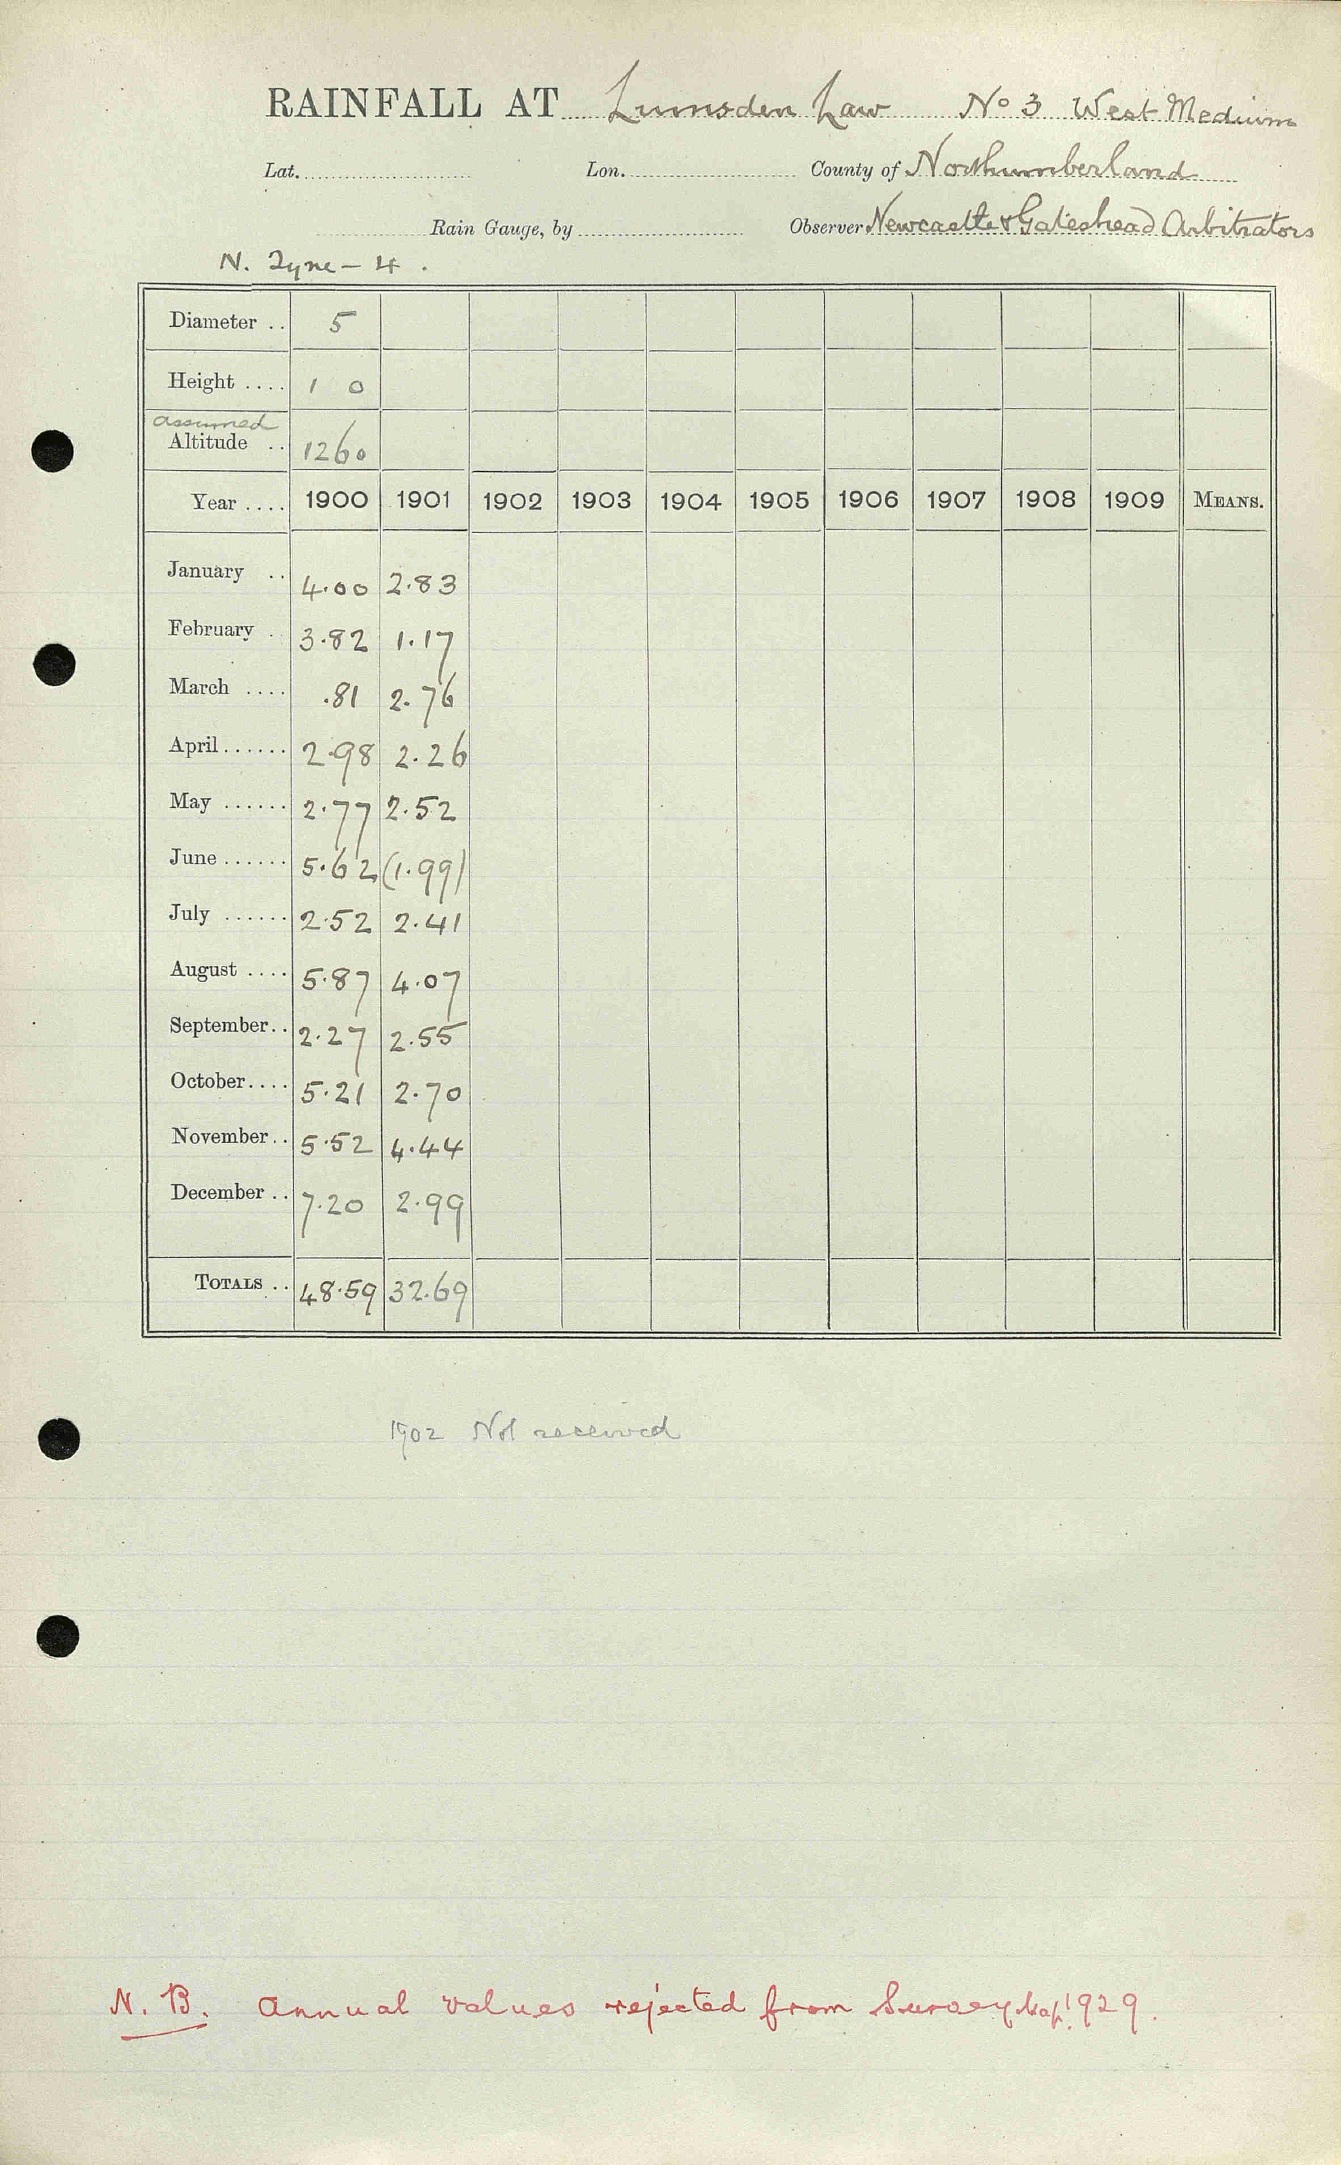 RAINFALL AT Lumsden Law No 3 West Medium
Lat. Lon. County of Northumberland
Rain Gauge, by Observer Newcastle & Gateshead Arbitrators
N. Tyne - 4.
Diameter .. 5
Height .... 1 0
assumed
Altitude .. 1260
Year .... 1900 1901 1902 1903 1904 1905 1906 1907 1908 1909 MEANS.
January .. 4.00 2.83
February . 3.82 1.17
March .... .81 2.76
April...... 2.98 2.26
May ...... 2.77 2.52
June...... 5.62 (1.99)
July ...... 2.52 2.41
August .... 5.87 4.07
September.. 2.27 2.55
October.... 5.21 2.70
November.. 5.52 4.44
December .. 7.20 2.99
TOTALS .. 48.59 32.69
1902 Not received
N. B. Annual values rejected from Survey Map! 1929.